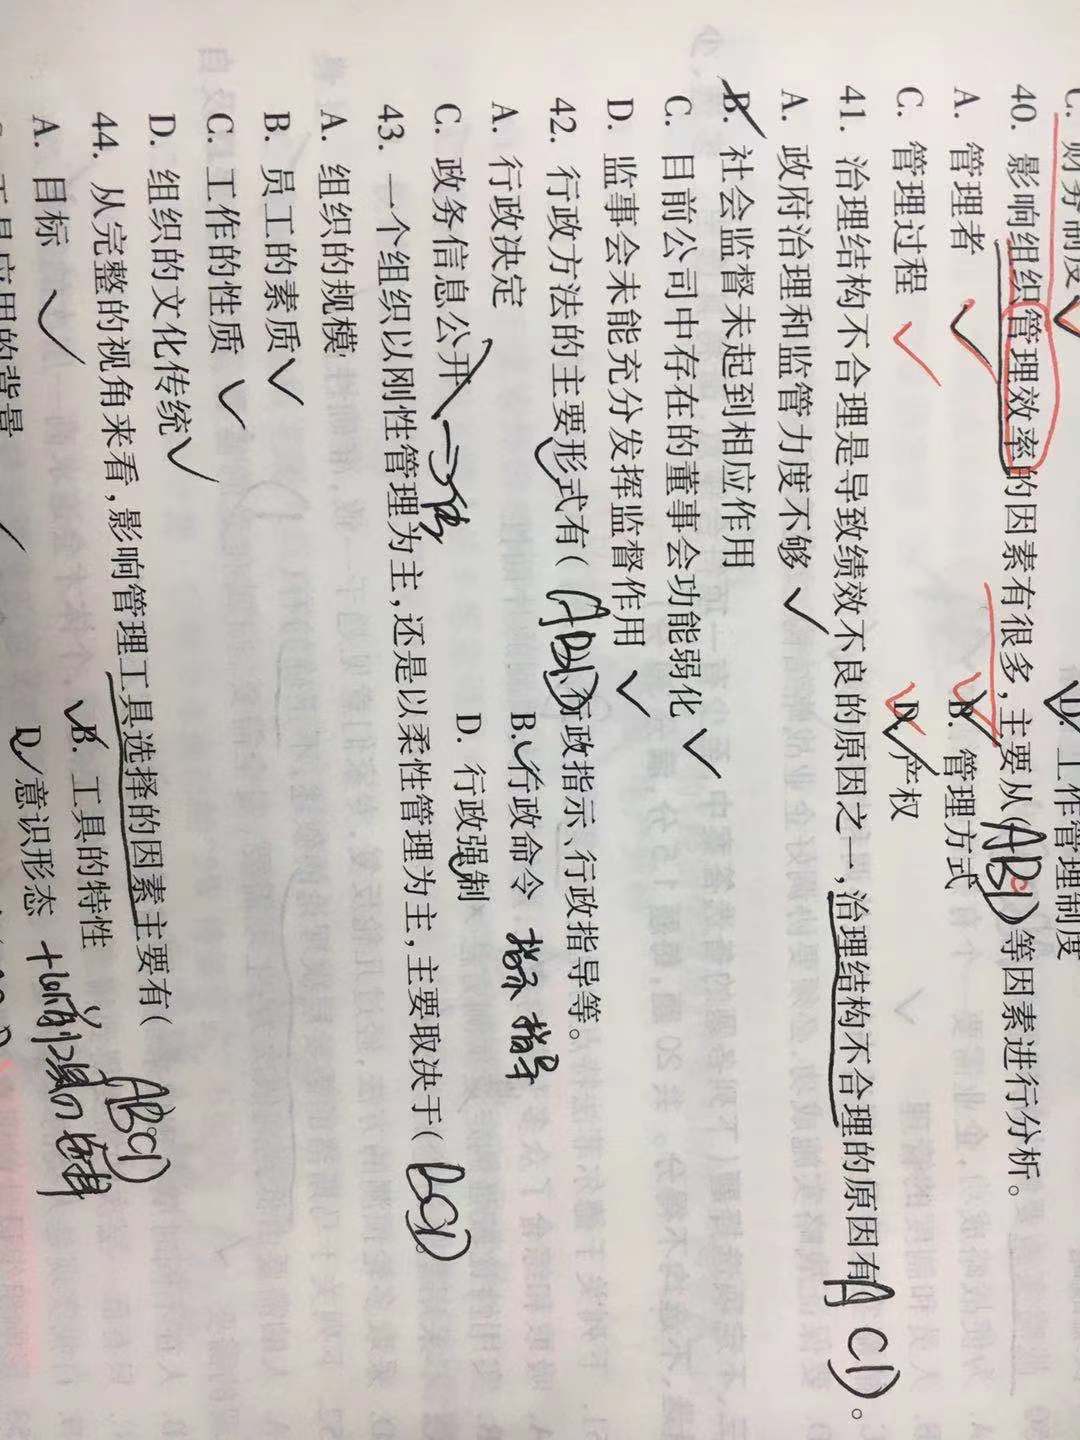 C. 财务制度
D. 工作管理制度
40. 影响组织管理效率的因素有很多,主要从(ABCD)等因素进行分析。
A. 管理者
B. 管理方式
C. 管理过程
D. 产权
41. 治理结构不合理是导致绩效不良的原因之一,治理结构不合理的原因有(ACD)。
A. 政府治理和监管力度不够
B. 社会监督未起到相应作用
C. 目前公司中存在的董事会功能弱化
D. 监事会未能充分发挥监督作用
42. 行政方法的主要形式有(ABD)、行政指示、行政指导等。
A. 行政决定
B. 行政命令
指示 指导
C. 政务信息公开
D. 行政强制
43. 一个组织以刚性管理为主,还是以柔性管理为主,主要取决于(BCD)。
A. 组织的规模
B. 员工的素质
C. 工作的性质
D. 组织的文化传统
44. 从完整的视角来看,影响管理工具选择的因素主要有(ABCD)
A. 目标
B. 工具的特性
工具应用的背景
D. 意识形态